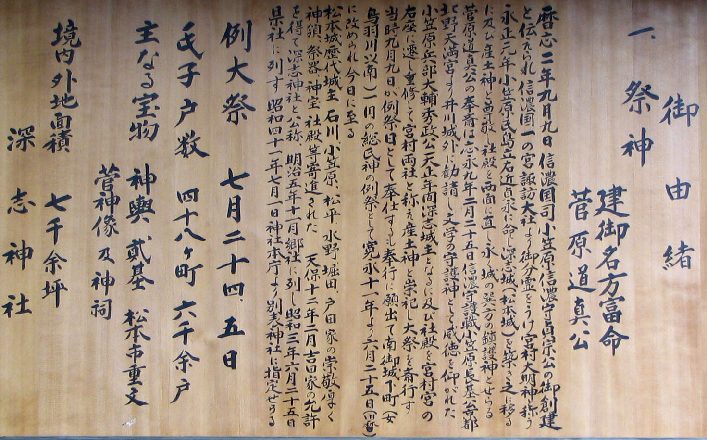 御由緒
一、祭神 建御名方富命
菅原道真公
暦応二年九月九日信濃国司小笠原信濃守貞宗公の御創建
と伝えられ信濃国一の宮諏訪大社より御分霊をうけ宮村大明神と称う
永正元年小笠原氏島立右近貞永に命じ深志城(松本城)を築き之に移る
に及び産土神と尊敬し社殿を西面に直し永く城の巽方の鎮護神とせらる
菅原道真公の奉斎は応永九年二月二十五日信濃守護職小笠原長基公京都
北野天満宮より井川城外に勧請し文学の守護神として威徳を仰がれた
小笠原兵部大輔秀政公天正年間深志城主となるに及び社殿を宮村宮の
右座に遷し重修して宮村両社と称え産土神と崇祀し大祭を斎行す
当時九月九日が例祭日として奉仕するも奉行に願出て南御城下町(女
鳥羽川以南)一円の総氏神の例祭として寛永十一年より六月二十五日(旧暦)
に改められ今日に至る
松本城歴代城主石川、小笠原、松平、水野、堀田、戸田家の崇敬厚く
神領、祭器、神宝、社殿等寄進された 天保十二年二月吉田家の允許
を得て深志神社と公称、明治五年十一月郷社に列し昭和三年六月二十五日
県社に列す 昭和四十一年七月一日神社本庁より別表神社に指定せらる
例大祭 七月二十四、五日
氏子戸数 四十八ヶ町 六千余戸
主なる宝物 神輿 貳基 松本市重文
菅神像及神祠
境内外地面積 七千余坪
深志神社